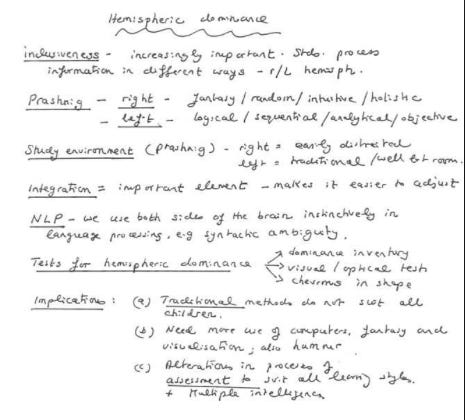 Hemispheric dominance
inclusiveness - increasingly important. Stds. process
information in different ways - r/L hemisph.
Prashnig - right - fantasy / random / intuitive / holistic
- left - logical / sequential / analytical / objective
Study environment (Prashnig) - right = easily distracted
left = traditional / well lit room.
Integration = important element - makes it easier to adjust
NLP - we use both sides of the brain instinctively in
language processing, e.g syntactic ambiguity.
Tests for hemispheric dominance → dominance inventory
→ visual / optical tests
→ in shape
Implications: (a) Traditional methods do not suit all
children.
(b) Need more use of computers, fantasy and
visualisation; also humour.
(c) Alterations in process of
assessment to suit all learning styles.
+ Multiple intelligences